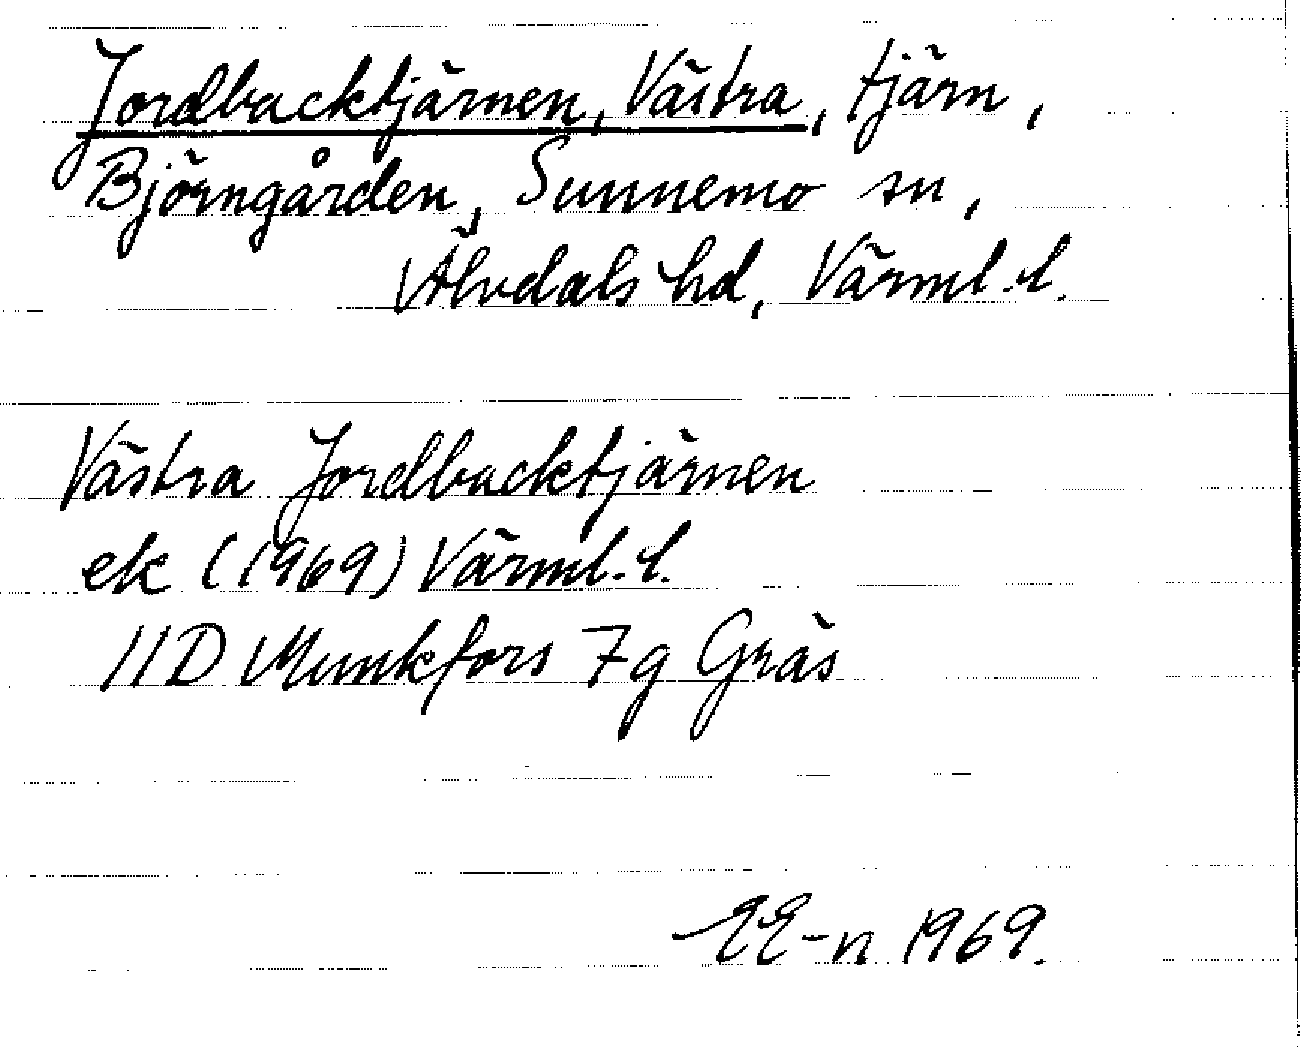 Jordbacktjärnen, Västra, tjärn,
Björngården, Sunnemo sn,
Älvdals hd, Värml.l.
Västra Jordbacktjärnen
ek (1969) Värml.l.
11D Munkfors 7g Gräs
EE-n 1969.